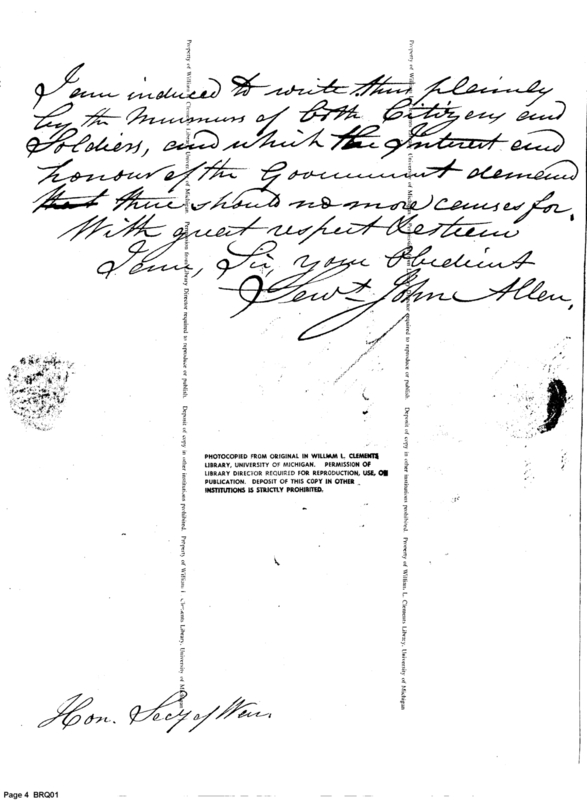 I am induced to write thus plainly
by the Murmurs of both Citizens and
Soldiers, and which the Interest and
honour of the Government demand
that there should no more causes for.
With great respect & esteem
I am, Sir, your Obedient
Servt John Allen.
PHOTOCOPIED FROM ORIGINAL IN WILLIAM L. CLEMENTS
LIBRARY, UNIVERSITY OF MICHIGAN. PERMISSION OF
LIBRARY DIRECTOR REQUIRED FOR REPRODUCTION, USE, OR
PUBLICATION. DEPOSIT OF THIS COPY IN OTHER
INSTITUTIONS IS STRICTLY PROHIBITED.
Property of William L. Clements Library, University of Michigan. Permission from Library Director required to reproduce or publish. Deposit of copy in other institutions prohibited. Property of William L. Clements Library, University of Michigan
Property of William L. Clements Library, University of Michigan. Permission from Library Director required to reproduce or publish. Deposit of copy in other institutions prohibited. Property of William L. Clements Library, University of Michigan
Hon. Secy of War.
Page 4 BRQ01